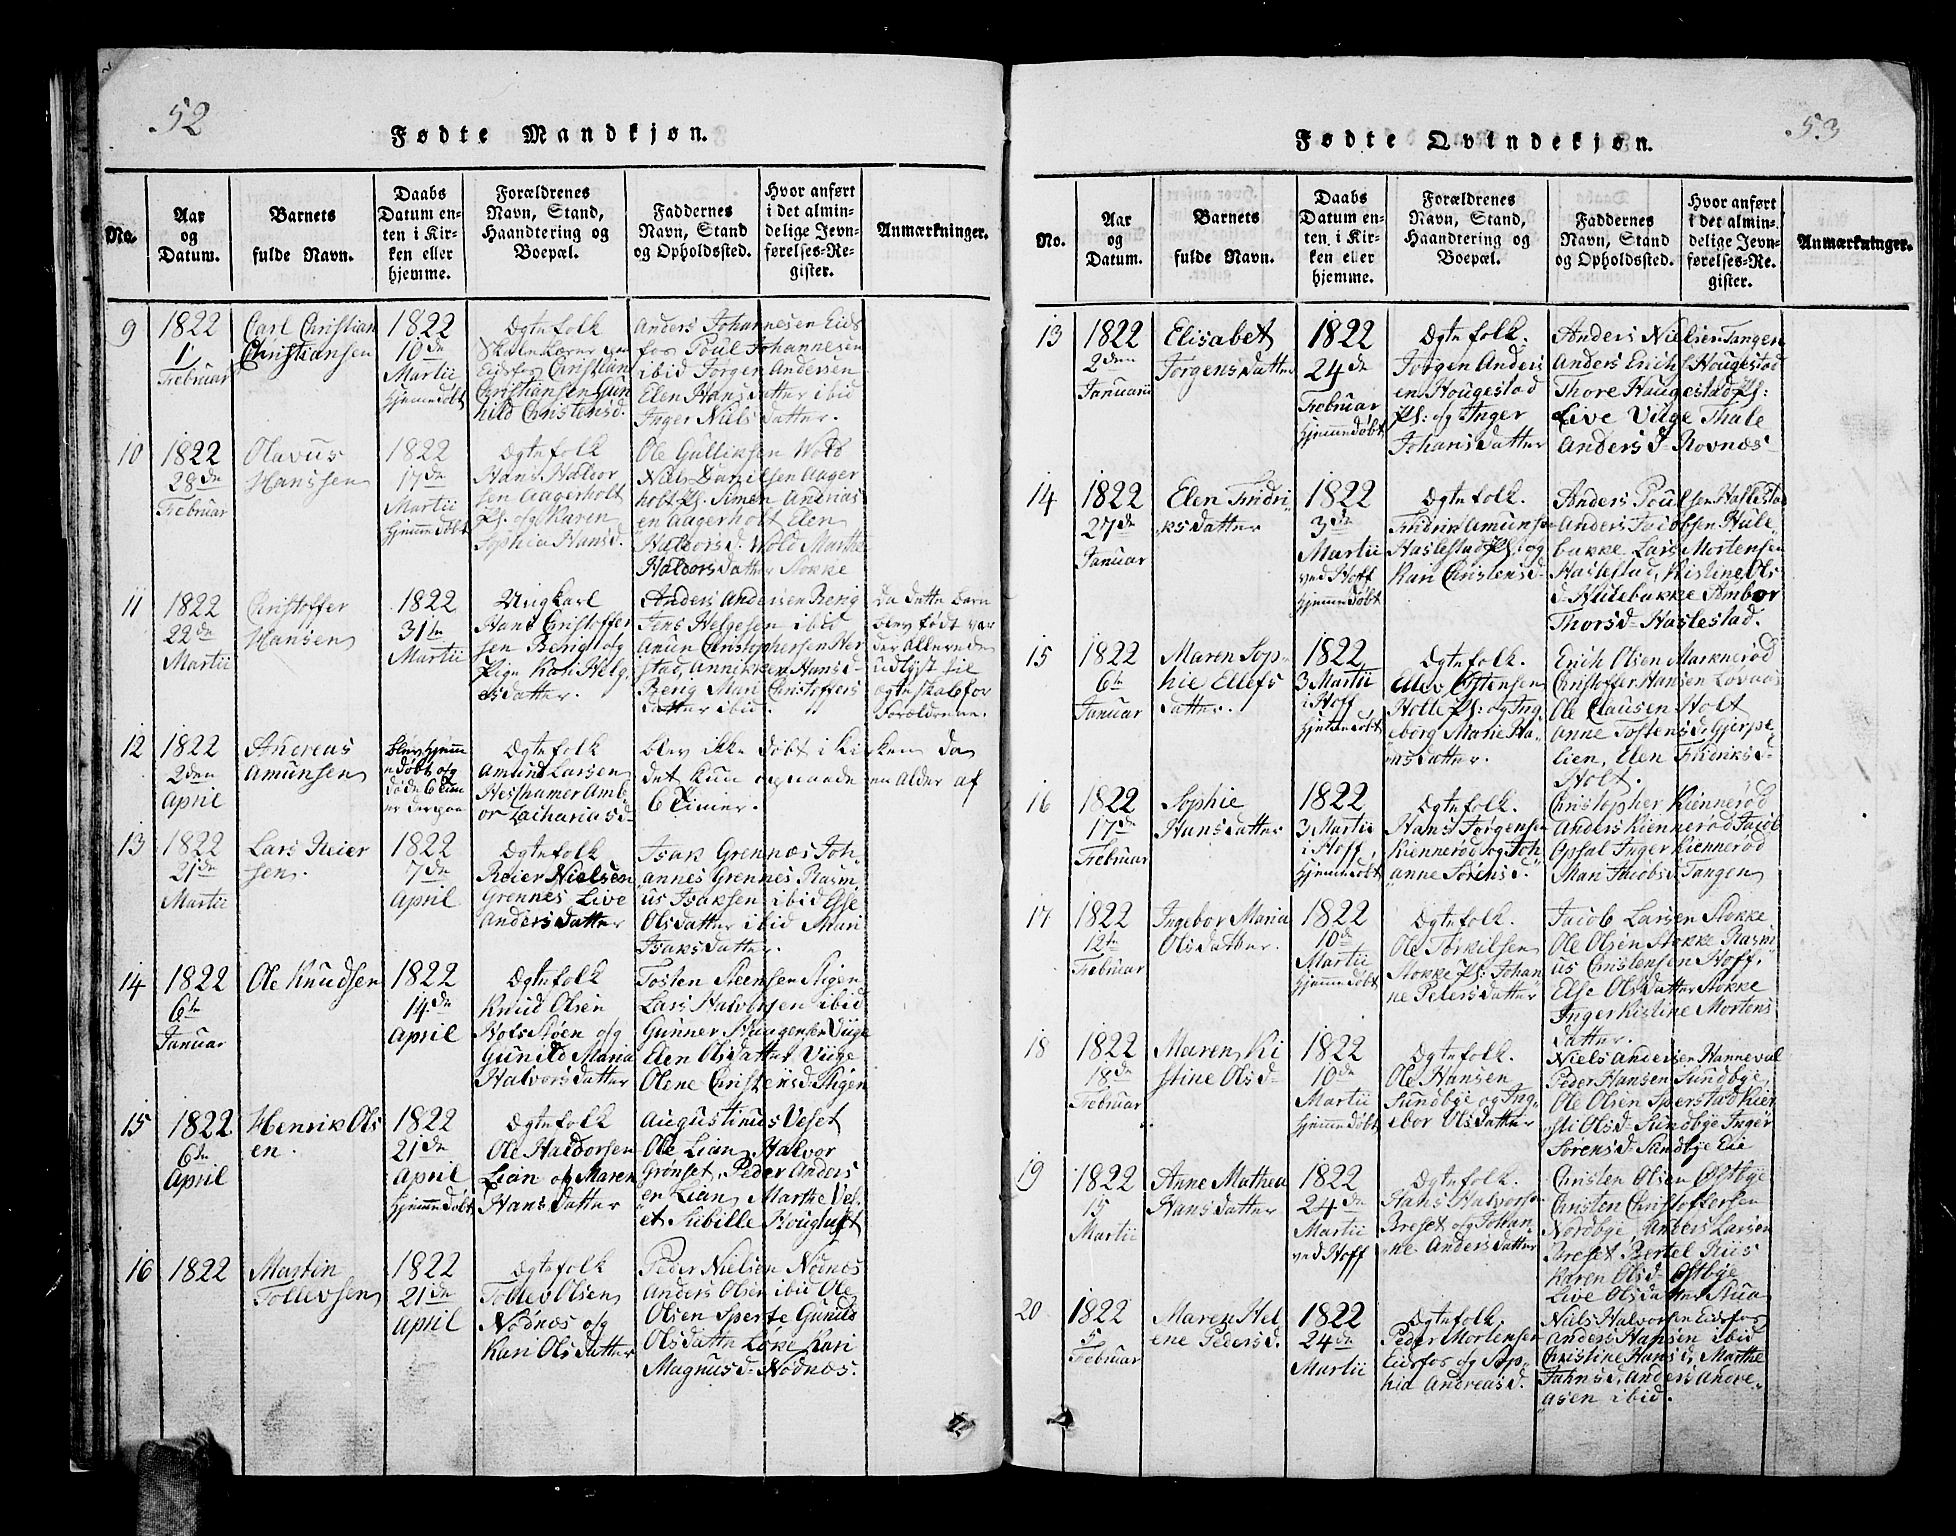 52
Fødte Mandkjøn.
No.
Aar
og
Datum.
Barnets
fulde Navn.
Daabs
Datum en-
ten i Kir-
ken eller
hjemme.
Forældrenes
Navn, Stand,
Haandtering og
Boepæl.
Faddernes
Navn, Stand
og Opholdssted.
Hvor anført
i det almin-
delige Jevn-
førelses-Re-
gister.
Anmærkninger.
9
1822
1
Februar
Carl Christian
Christiansen
1822
10de
Martii
hjemmedøbt
Ægtefolk
Eidsfos Christian
Christiansen Gun
hild Christensd.
Anders Johannesen Eids
fos Poul Johannesen
ibid Jørgen Andersen
Elen Hansdatter ibid
Inger Nielsdatter.
10
1822
28de
Februar
Olavus
Hanssen
1822
17de
Martii
hjemmedøbt
Ægtefolk
Hans Haldor
sen Aagerholt
Pl. og Karen
Sophia Hansd.
Ole Gulliksen Wold
Niels Danielsen Aager
holt Pl. Simen Andrias
en Aagerholt Elen
Haldorsd. Wold Marthe
Haldorsdatter Stokke
11
1822
22de
Martii
Christoffer
Hansen
1822
31te
Martii
Ungkarl
Hans Christoffer
sen Berig og
Pige Kari Helg
esdatter.
Anders Andersen Berig
Jens Helgesen ibid
Amun Christophersen Her
stad, Anniken Hansd
Berig Mari Christoffers
datter ibid.
Da dette Barn
blev født var
der Allerede
udlyst til
ægteskab for
Foroldrene.
12
1822
2den
April
Andreas
Amunsen
Blev hjemme
døbt og
døde 6 Time
Ægtefolk
Amund Larsen
Amb
or Zachariasd
blev ikke døbt i Kirken da
det kun opnaade en alder af
6 Timer.
13
1822
21de
Martii
Lars Reier
sen.
1822
7de
April
Ægtefolk
Reier Nielsen
Grennes Live
Andersdatter
Isak Grennæs Joh-
annes Grennes Rasm
us Isaksen ibid Else
Olsdatter ibid Mari
Isaksdatter.
14
1822
6te
Januar
Ole Knudsen
1822
14de
April
Ægtefolk
Knud Olsen
og
Gunild Maria
Halvorsdatter
Tosten Steensen Stigen
Lars Halvorsen ibid
Gunner Haugensen Viige
Elen Olsdatter Viige
Olene Christensd Stigen
15
1822
6te
April
Henrik Ols
en.
1822
21de
April
hjemmedøbt
Ægtefolk
Ole Haldorsen
Lian og Maren
Hansdatter
Augustinus Veset
Ole Lian, Halvor
Grønset, Peder Anders
en Lian, Marthe Ves
et Sibille
16
1822
Martin
Tollevsen
1822
21de
April
Ægtefolk
Tollev Olsen
Nødnæs og
Kari Olsdatter
Peder Nielsen Nødnæs
Anders Olsen ibid Ole
Olsen Sperte Gunild
Olsdatter Løke Kari
Magnusd- Nødnæs.
53
Fødte Qvindekjøn.
No.
Aar
og
Datum.
Barnets
fulde Navn.
Daabs
Datum en-
ten i Kir-
ken eller
hjemme.
Forældrenes
Navn, Stand,
Haandtering og
Boepæl.
Faddernes
Navn, Stand
og Opholdssted.
Hvor anført
i det almin-
delige Jevn-
førelses-Re-
gister.
Anmærkninger.
13
1822
2den
Januarii
Elisabet
Jørgensdatter
1822
24de
Februar
hjemmedøbt
Ægtefolk.
Jørgen Anders
en Hougestad
Pl: og Inger
Johansdatter
Anders Nielsen Tangen
Anders Erichs Hougestad
Thore Haugestad Pl:
Live Viige Thale
Andersd- Rovnæs-
14
1822
27de
Januar
Elen Fridri
ksdatter
1822
3de
Martii
ved Hoff
hjemmedøbt
Ægtefolk.
Fridrik Amunsen
Haslestad Pl: og
Kari Christensd-
Anders Poulsen Haslestad
Anders Jacobsen Hule
bakke Lars Mortensen
Haslestad, Kistine Ols
d- Hulebakke Ambor
Thorsd- Haslestad.
15
1822
6te
Januar
Maren Sop-
hie Ellefs
datter.
1822
3 Martii
i Hoff
hjemmedøbt
Ægtefolk.
Ellev Ostensen
Holte Pl: og Ing
eborg Marie Ha
nsdatter.
Erich Olsen Marknerød
Christoffer Hansen Lovaas
Ole Clausen Holt
Anne Tostensd, Gjerpe
lien, Elen Fririksd-
Holt.
16
1822
17de
Februar
Sophie
Hansdatter
1822
3 Martii
i Hoff,
hjemmedøbt
Ægtefolk.
Hans Jørgensen
Kiennerød og Joh
anne Sørensd.
Christopher Kiennerød
Anders Kiennerød Jacob
Opsal Inger Kiennerød
Mari Jacobsd- Tangen
17
1822
12te
Februar
Ingebor Maria
Olsdatter.
1822
10de
Martii
hjemmedøbt
Ægtefolk.
Ole Torkilsen
Stokke Pl: Johan
ne Petersdatter
Jacob Larsen Stokke
Ole Olsen Stokke Rasm
us Christensen Hoff,
Else Olsdatter Stokke
Inger Kistine Mortens
datter.
18
1822
18de
Februar
Maren Ki
stine Olsd-
1822
10de
Martii
hjemmedøbt
Ægtefolk.
Ole Hansen
Sundbye og Ing-
ebor Olsdatter
Niels Andersen Hanneval
Peder Hansen Sundbye
Ole Olsen Sperstad Kier
sti Olsd- Sundbye Inger
Sørensd- Sundbye Eie
19
1822
15
Martii
Anne Mathea
Hansdatter
1822
24de
Martii
ved Hoff
Ægtefolk.
Hans Halvorsen
Breset og Johan
ne Andersdatter
Christen Olsen Østbye
Christen Christoffersen
Nordbye, Anders Larsen
Breset Bertel Riis
Karen Olsd- Østbye
Live Olsdatter Rua
20
1822
5
Februar
Maren Hel
ene Pedersd.
1822
24de
Martii
Ægtefolk.
Peder Mortensen
Eidsfos og Sop-
hia Andreasd.
Niels Halvorsen Eidsfos
Anders Hansen ibid
Christine Hansd, Marthe
Jahnsd, Anders Andre-
asen ibid.